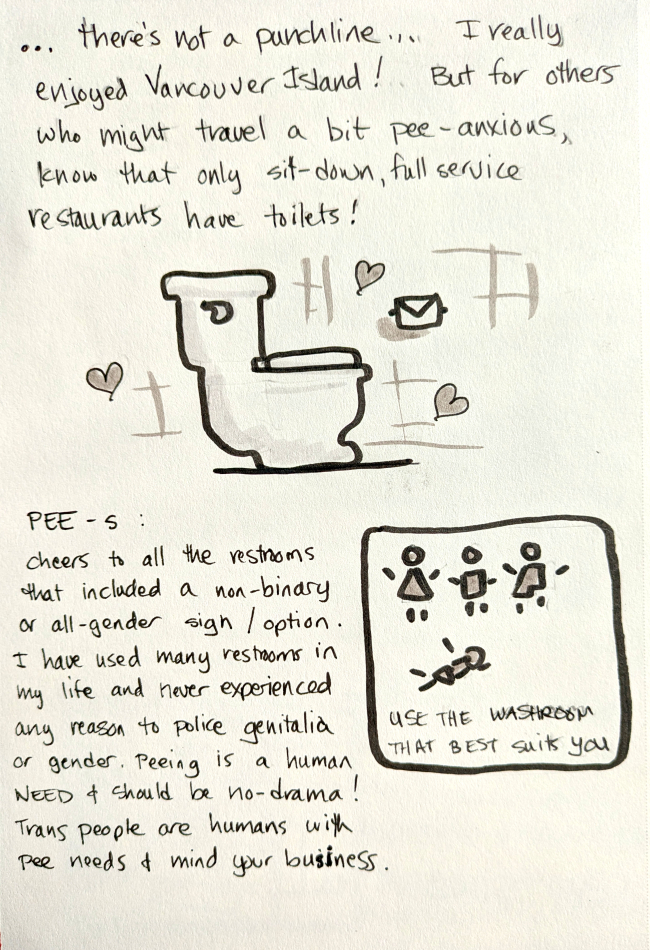 ... there's not a punchline... I really
enjoyed Vancouver Island! But for others
who might travel a bit pee-anxious,
know that only sit-down, full service
restaurants have toilets!
PEE-S:
cheers to all the restrooms
that included a non-binary
or all-gender sign/option.
I have used many restrooms in
my life and never experienced
any reason to police genitalia
or gender. Peeing is a human
NEED & should be no-drama!
Trans people are humans with
pee needs & mind your business.
USE THE WASHROOM
THAT BEST suits you